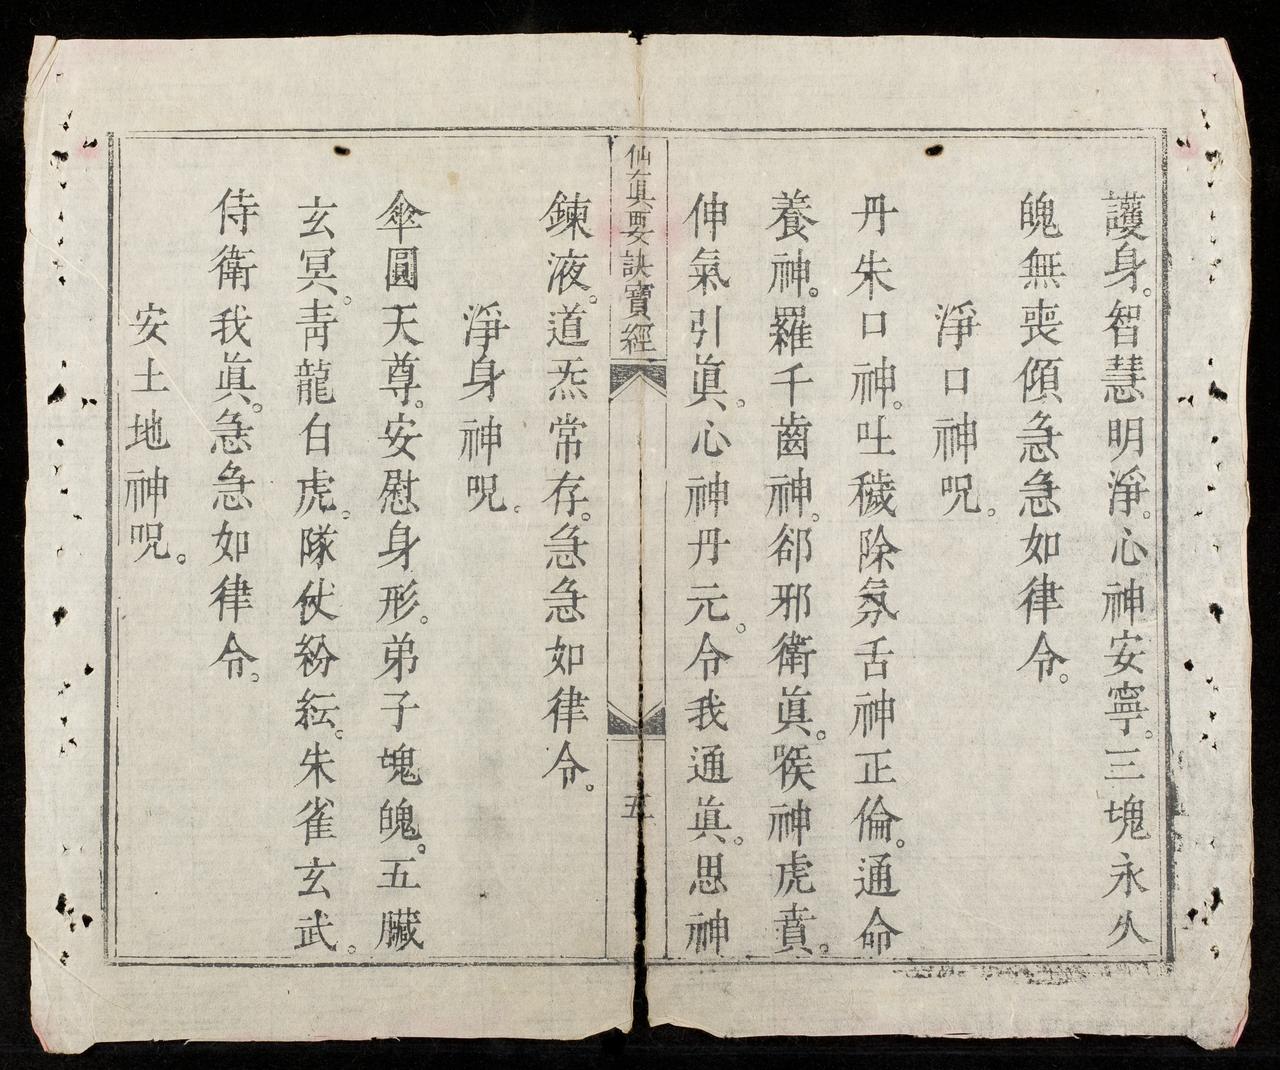 護身。智慧明淨。心神安寧。三塊永久
魄無喪傾急急如律令。
淨口神呪。
丹朱口神。吐穢除氛舌神正倫。通命
養神。羅千齒神。郤邪衛眞。喉神虎賁。
伸氣引眞。心神丹元。令我通眞。思神
仙眞要訣寶經
五
鍊液。道炁常存。急急如律令。
淨身神呪。
傘圓天尊。安慰身形。弟子塊魄。五臟
玄冥。靑龍白虎。隊仗紛紜。朱雀玄武。
侍衛我眞。急急如律令。
安土地神呪。